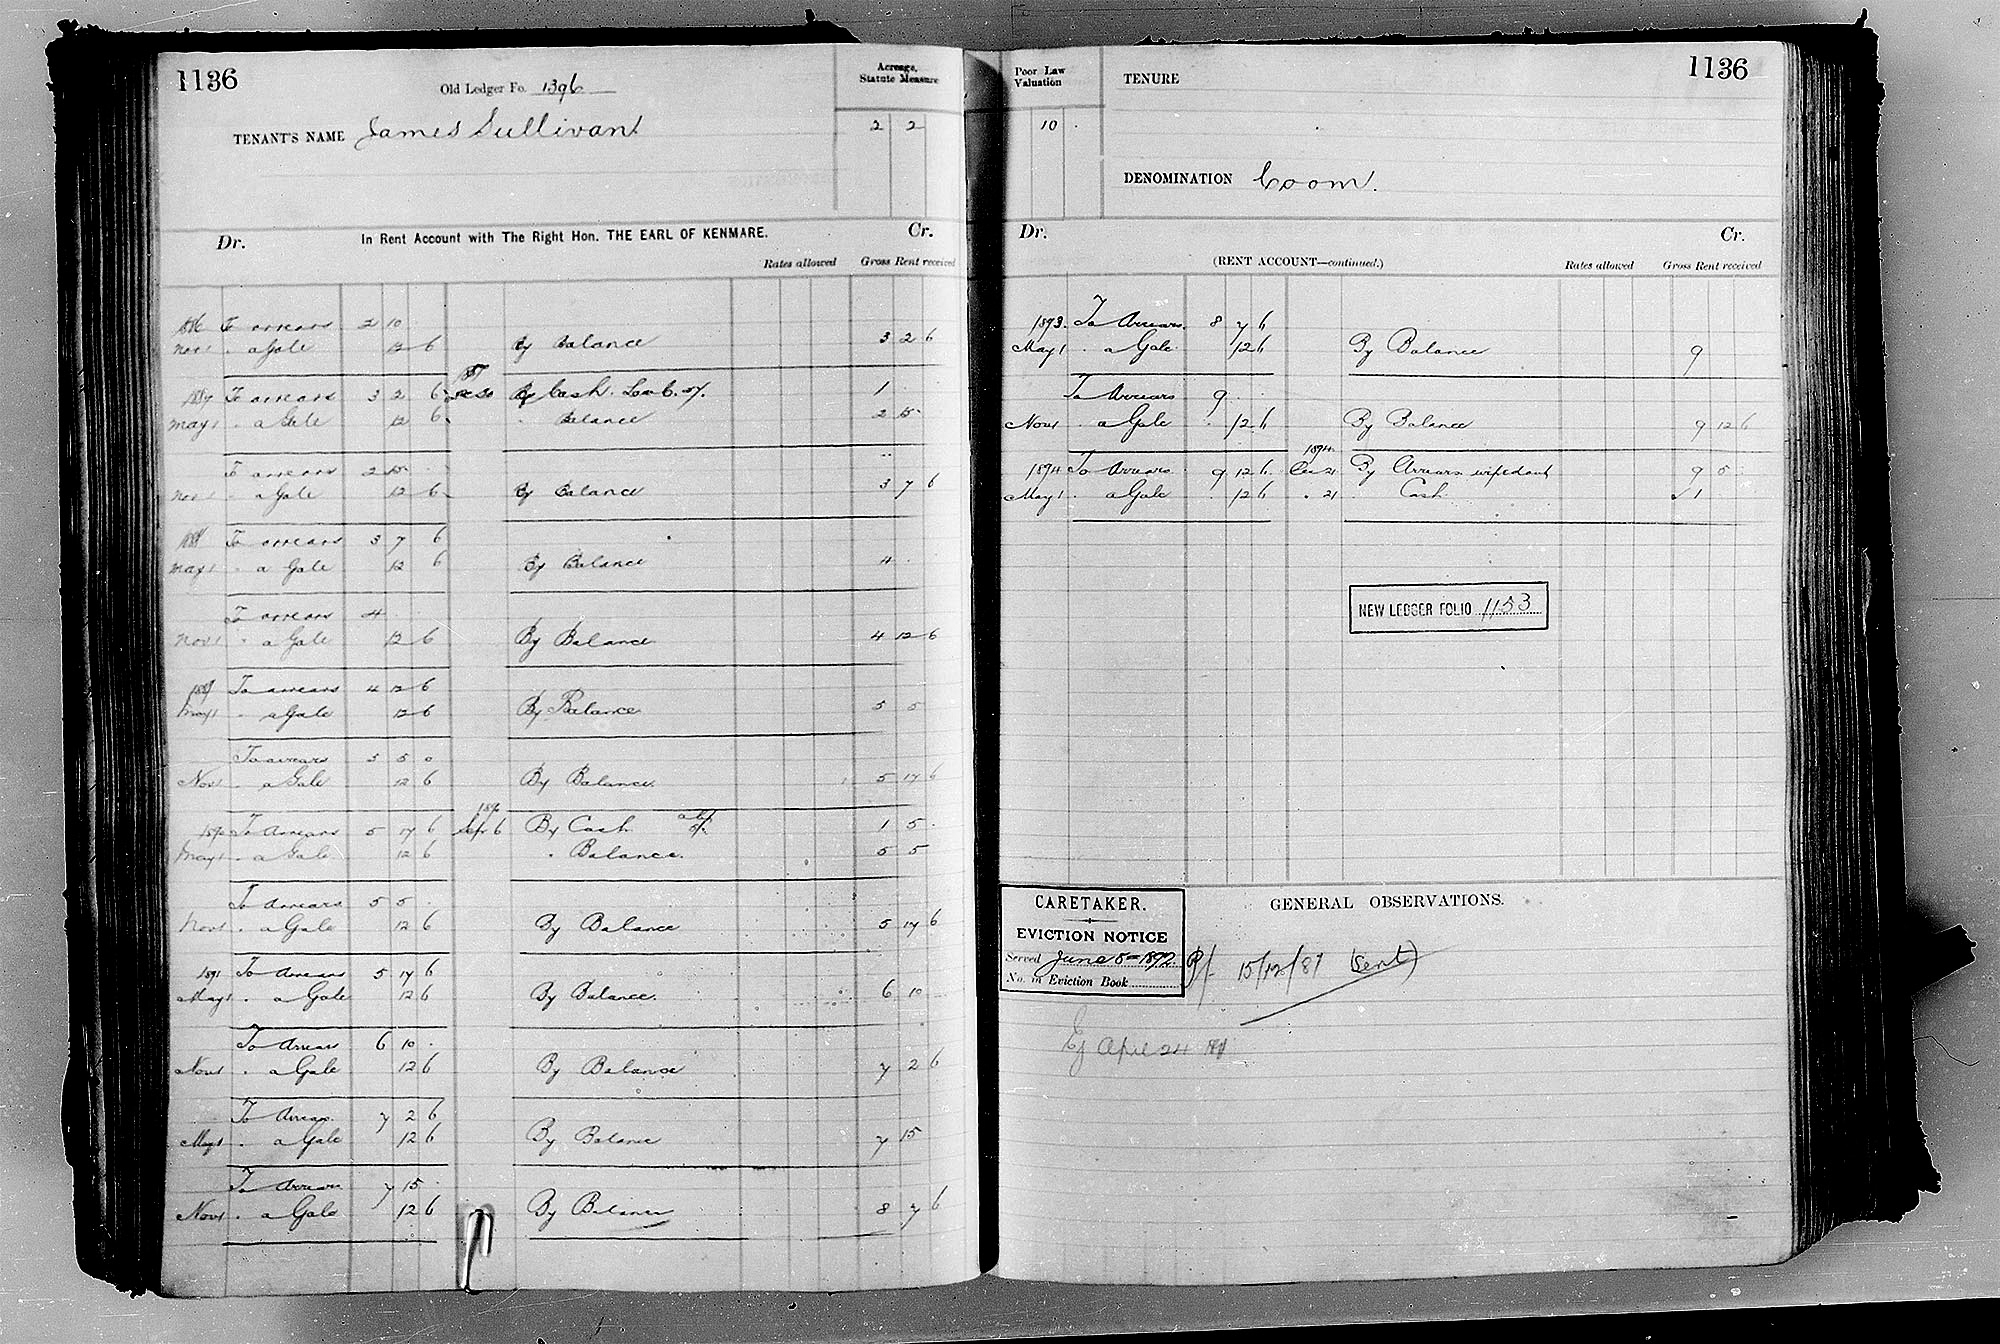 1136
Old Ledger Fo. 1396
Acreage, Statute Measure
TENANT'S NAME James Sullivan
2 2
Dr. In Rent Account with The Right Hon. THE EARL OF KENMARE. Cr.
Rates allowed Gross Rent received
1886 To arrears 2 10
Nov 1 . a Gale 12 6 By Balance 3 2 6
1887 To arrears 3 2 6 By Cash 1
May 1 . a Gale 12 6 . Balance 2 15
To arrears 2 15
Nov 1 . a Gale 12 6 By Balance 3 7 6
1888 To arrears 3 7 6
May 1 . a Gale 12 6 By Balance 4
To arrears 4
Nov 1 . a Gale 12 6 By Balance 4 12 6
1889 To arrears 4 12 6
May 1 . a Gale 12 6 By Balance 5 5
To arrears 5 5 0
Nov 1 . a Gale 12 6 By Balance 5 17 6
1890
1890 To Arrears 5 17 6 Sep 6 By Cash 1 5
May 1 . a Gale 12 6 . Balance 5 5
To Arrears 5 5
Nov 1 . a Gale 12 6 By Balance 5 17 6
1891 To Arrears 5 17 6
May 1 . a Gale 12 6 By Balance 6 10
To Arrears 6 10
Nov 1 . a Gale 12 6 By Balance 7 2 6
To Arrears 7 2 6
May 1 . a Gale 12 6 By Balance 7 15
To Arrears 7 15
Nov 1 . a Gale 12 6 By Balance 8 7 6
Poor Law Valuation
TENURE
1136
10
DENOMINATION Coom.
Dr. Cr.
(RENT ACCOUNT—continued.) Rates allowed Gross Rent received
1893. To Arrears 8 7 6
May 1 . a Gale 12 6 By Balance 9
To Arrears 9
Nov 1 . a Gale 12 6 By Balance 9 12 6
1894
1894 To Arrears 9 12 6 21 By Arrears wiped out 9 5
May 1 . a Gale 12 6 . 21 Cash 1
NEW LEDGER FOLIO 1153
CARETAKER.
EVICTION NOTICE
Served June 5 = 1892
No. in Eviction Book
GENERAL OBSERVATIONS.
15/12/87 (Sent)
Ej April 24